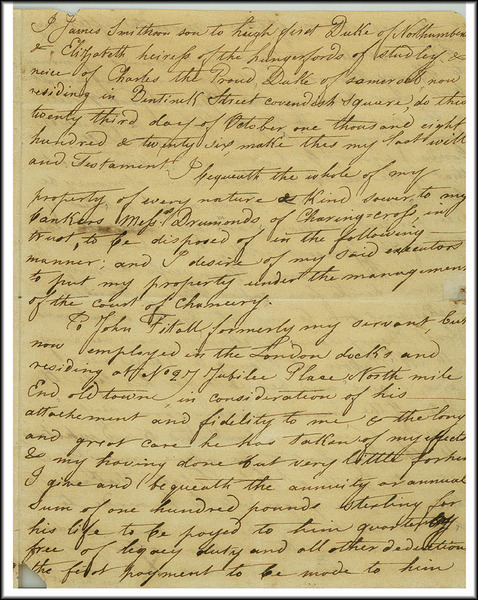 I James Smithson son to heigh first Duke of Northumberland
& Elizabeth heiress of the hungerfords of studley &
neice of Charles the Proud Duke of Somerset now
residing in Bentinck Street cavendish square, do this
twenty third day of October, one thousand eight
hundred & twenty six, make this my last will
and Testament. I bequeath the whole of my
property of every nature & kind soever to my
bankers Messrs Drumonds of Charing-cross, in
trust, to be disposed of in the following
manner; and I desire of my said executors
to put my property under the management
of the court of Chancery.
To John Fitall, formerly my servant, but
now employed in the London docks and
residing at No 27 Jubilee Place North mile
End old towne, in consideration of his
attachement and fidelity to me & the long
and great care he has taken of my effects
& my having done but very little for him
I give and bequeath the annuity or annual
sum of one hundred pounds sterling for
his life to be payed to him quarterly
free of legacy duty and all other deductions
the first payment to be made to him